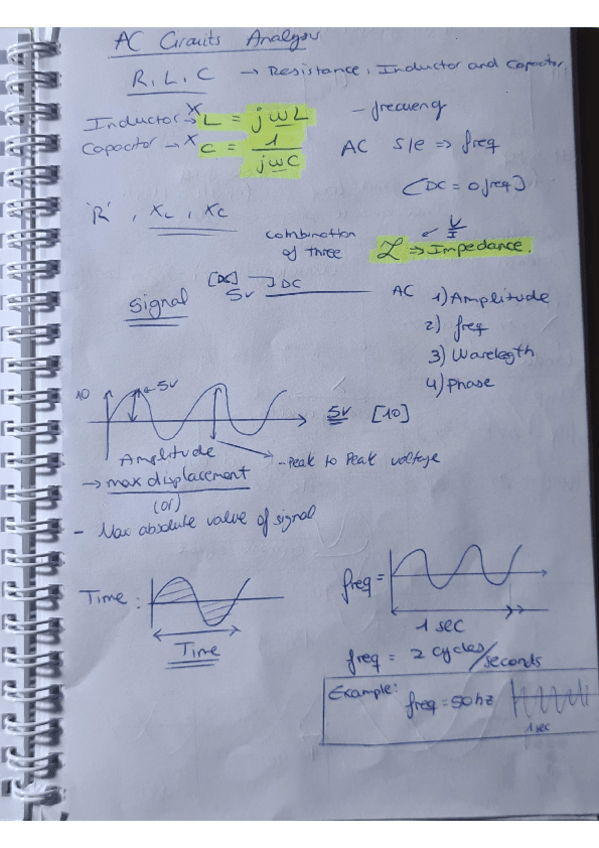 AC Circuits Analysis
R, L, C → Resistance, Inductor and Capacitor,
Inductor → X L = jωL - frequency
Capacitor → X C = 1/jωC AC s/e => freq
[DC = 0 freq]
'R', XL, XC
combination of three Z => Impedance. ← V/I
Signal [DC] 5v DC
AC 1) Amplitude
2) freq
3) Wavelegth
4) Phase
10 ← 5v
5v [10]
Amplitude - Peak to Peak voltage
→ max displacement
(or)
- Max absolute value of signal
Time :
Time
freq =
1 sec
freq = 2 cycles/seconds
Example: freq = 50hz
1 sec